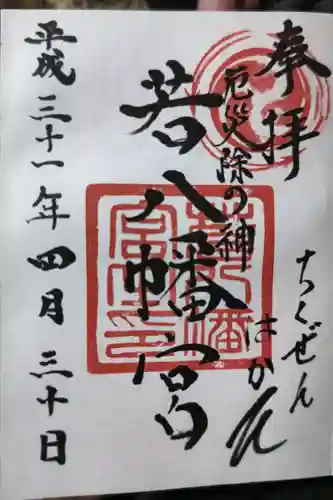 奉拝
ちくぜん
はかた
厄災除の神
若八幡宮
平成三十一年四月三十日